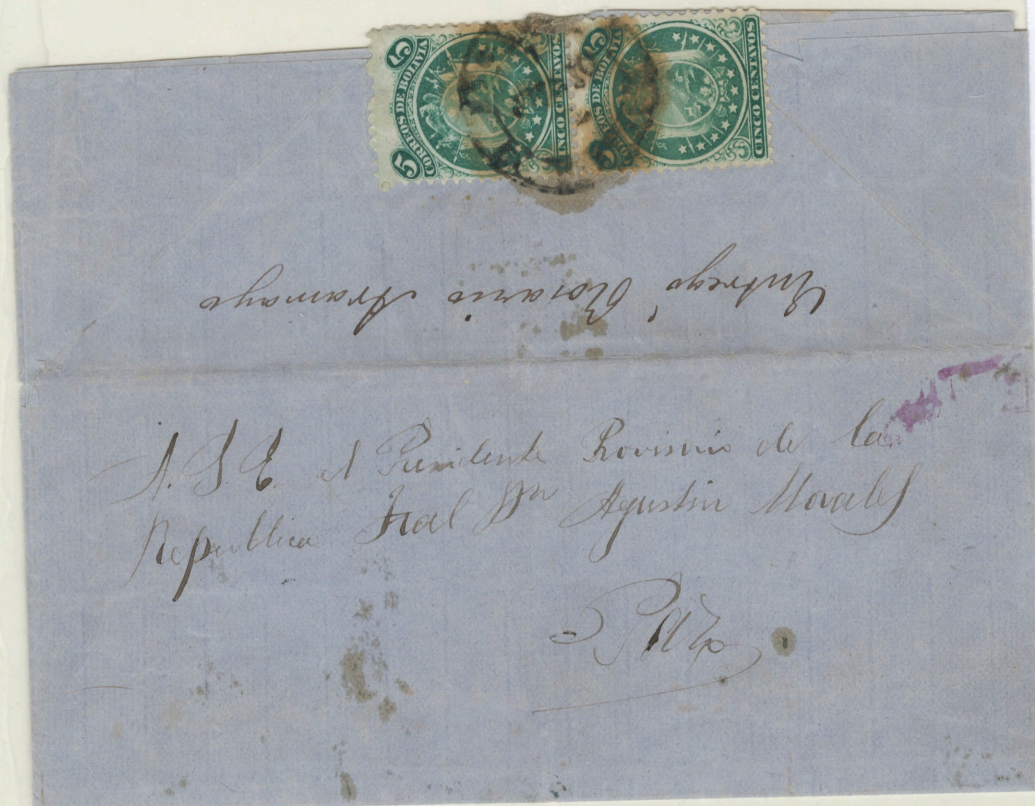 5 CORREOS DE BOLIVIA 5
CINCO CENTAVOS
5 CORREOS DE BOLIVIA
CINCO CENTAVOS
Entregó Rosario Aramayo
A. S. E. el Presidente Provisorio de la
Republica Gral Dn Agustin Morales
Paz